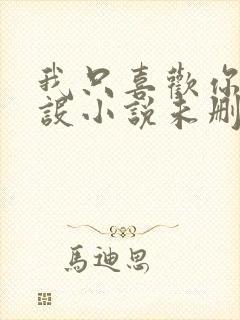 我只喜歡你
設小說未刪
馬迪思